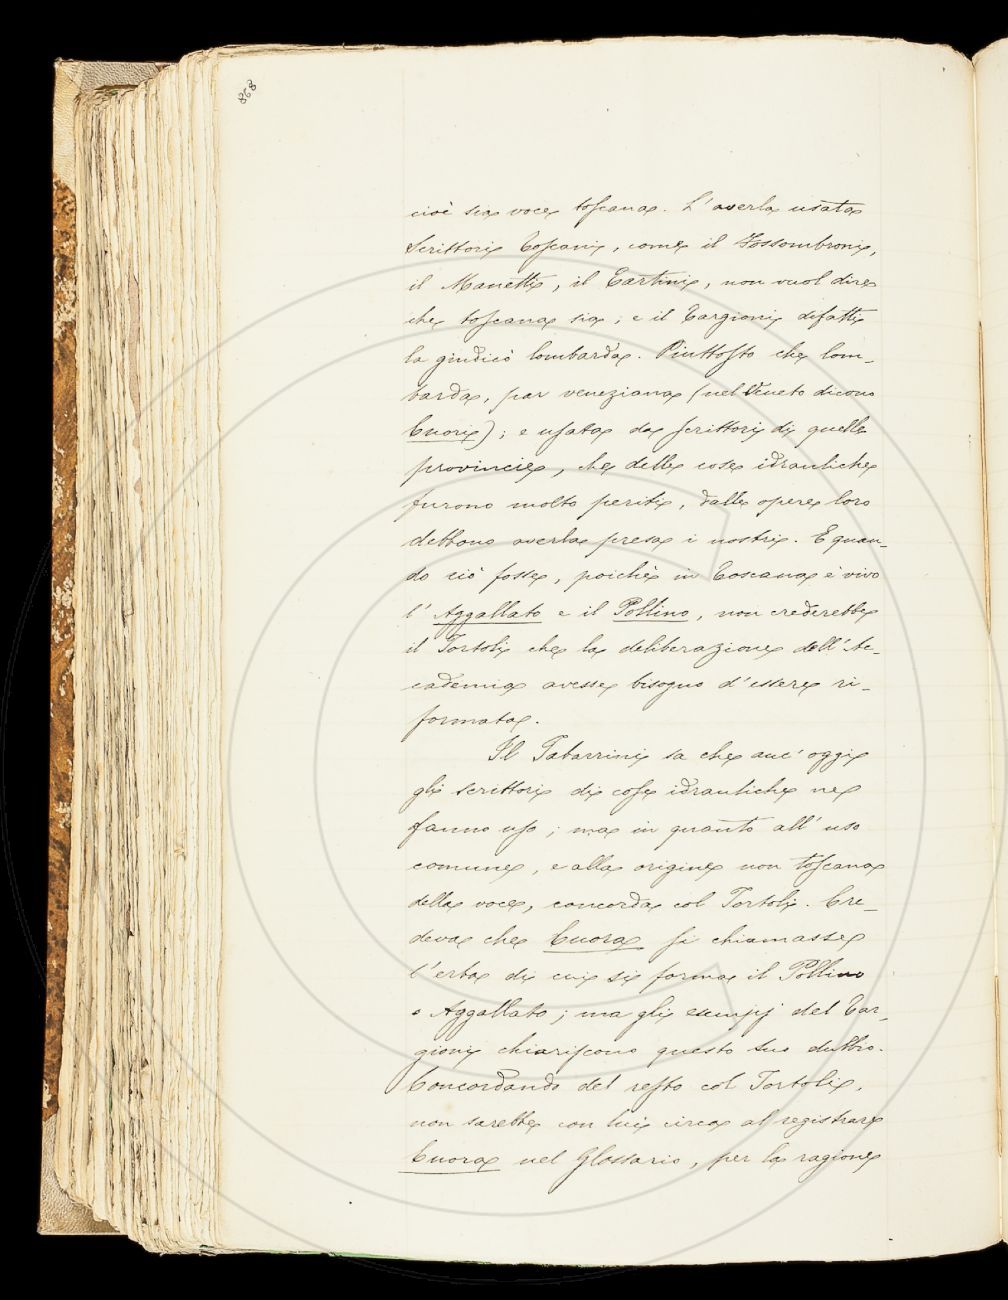 868
cioè sia voce toscana. L'averla usata
Scrittori Toscani, come il Fossombroni,
il Manetti, il Cartini, non vuol dire
che toscana sia; e il Targioni difatti
la giudicò lombarda. Piuttosto che lom-
barda, par veneziana (nel Veneto dicono
Cuori); e usata da scrittori di quelle
provincie, che delle cose idrauliche
furono molto periti, dalle opere loro
debbono averla presa i nostri. E quan-
do ciò fosse, poichè in Toscana è vivo
l'Aggallato e il Pollino, non crederebbe
il Tortoli che la deliberazione dell'Ac-
cademia avesse bisogno d'essere ri-
formata.
Il Tabarrini sa che anc'oggi
gli scrittori di cose idrauliche ne
fanno uso; ma in quanto all'uso
comune, e alla origine non toscana
della voce, concorda col Tortoli. Cre-
deva che Cuora si chiamasse
l'erba di cui si forma il Pollino
o Aggallato; ma gli esempj del Tar-
gioni chiariscono questo suo dubbio.
Concordando del resto col Tortoli,
non sarebbe con lui circa al registrare
Cuora nel Glossario, per la ragione